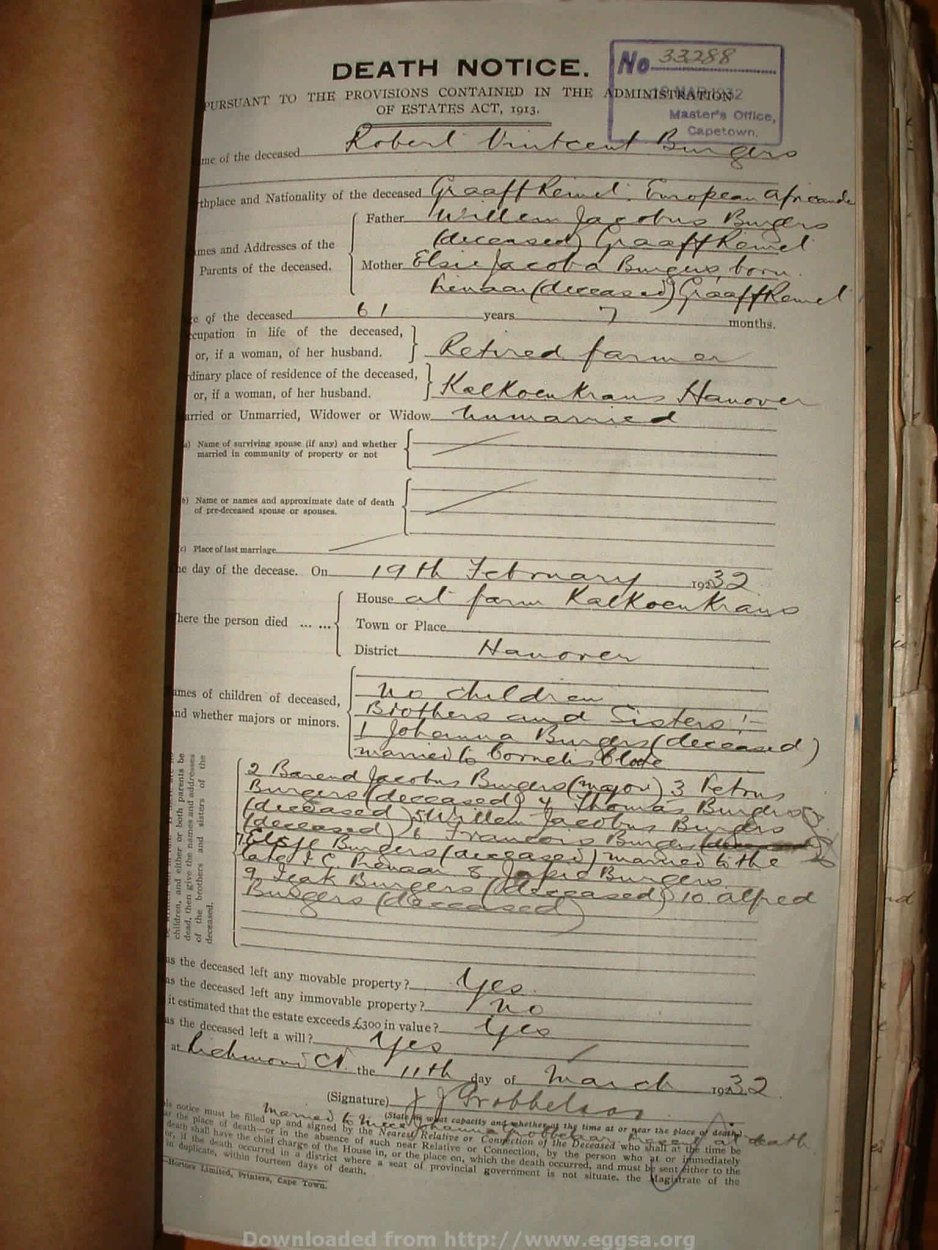 DEATH NOTICE.
No 33288
MAR 1932
Master's Office,
Capetown.
PURSUANT TO THE PROVISIONS CONTAINED IN THE ADMINISTRATION
OF ESTATES ACT, 1913.
me of the deceased Robert Vintcent Burgers
thplace and Nationality of the deceased Graaff Reinet. European Africander
mes and Addresses of the
Parents of the deceased.
Father Willem Jacobus Burgers
(deceased) Graaff Reinet
Mother Elsie Jacoba Burgers, born
Pienaar (deceased) Graaff Reinet
e of the deceased 61 years 7 months.
cupation in life of the deceased,
or, if a woman, of her husband. Retired farmer
dinary place of residence of the deceased,
or, if a woman, of her husband. Kalkoenkrans Hanover
arried or Unmarried, Widower or Widow Unmarried
a) Name of surviving spouse (if any) and whether
married in community of property or not
b) Name or names and approximate date of death
of pre-deceased spouse or spouses.
(c) Place of last marriage
he day of the decease. On 19th February 1932
here the person died ... ...
House at farm Kalkoenkrans
Town or Place
District Hanover
ames of children of deceased,
and whether majors or minors.
no children
Brothers and Sisters :-
1 Johanna Burgers (deceased)
married to Cornelis Cloete
children, and either or both parents be
dead, then give the names and addresses
of the brothers and sisters of the
deceased.
2 Barend Jacobus Burgers (major) 3 Petrus
Burgers (deceased) 4 Thomas Burgers
(deceased) 5 Willem Jacobus Burgers
(deceased) 6 Francois Burgers
7 Elsje Burgers (deceased) married to the
late J. C. Pienaar 8 Burgers
9 Izak Burgers (deceased) 10 Alfred
Burgers (deceased)
as the deceased left any movable property? Yes
as the deceased left any immovable property? No
it estimated that the estate exceeds £300 in value? Yes
as the deceased left a will? Yes
at Richmond CP. the 11th day of March 1932
(Signature) J J Grobbelaar
(State in what capacity and whether at the time at or near the place of death)
married to niece Johanna Grobbelaar present at death
is notice must be filled up and signed by the Nearest Relative or Connection of the Deceased who shall at the time be
at the place of death—or in the absence of such near Relative or Connection, by the person who at or immediately
death shall have the chief charge of the House in, or the place on, which the death occurred, and must be sent either to the
or, if the death occurred in a district where a seat of provincial government is not situate, the Magistrate of the
in duplicate, within fourteen days of death.
Hortors Limited, Printers, Cape Town.
Downloaded from http://www.eggsa.org